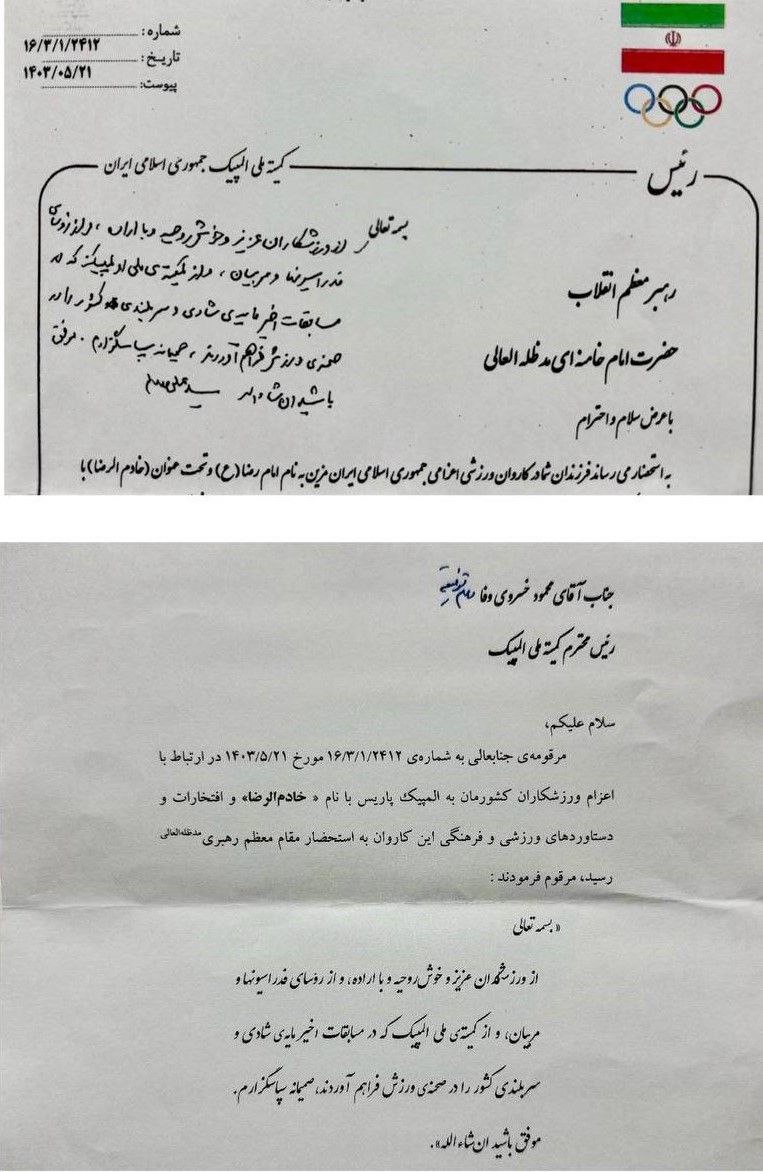 شماره:
۱۶/۳/۱/۲۴۱۲
تاریخ:
۱۴۰۳/۰۵/۲۱
پیوست:
رئیس
کمیته ملی المپیک جمهوری اسلامی ایران
بسمه تعالی
از ورزشکاران عزیز و خوش روحیه و با اراده، و از رؤسای
فدراسیونها و مربیان، و از کمیته‌ی ملی المپیک که در
مسابقات اخیر مایه‌ی شادی و سربلندی کشور را در
صحنه‌ی ورزش فراهم آوردند، صمیمانه سپاسگزارم. موفق
باشید ان شاءالله
سید علی خامنه‌ای
رهبر معظم انقلاب
حضرت امام خامنه ای مدظله العالی
با عرض سلام و احترام
به استحضار می رساند فرزندان شما در کاروان ورزشی اعزامی جمهوری اسلامی ایران مزین به نام امام رضا (ع) و تحت عنوان (خادم الرضا) با
جناب آقای محمود خسروی وفا دام توفیقه
رئیس محترم کمیته ملی المپیک
سلام علیکم،
مرقومه‌ی جنابعالی به شماره‌ی ۱۶/۳/۱/۲۴۱۲ مورخ ۱۴۰۳/۵/۲۱ در ارتباط با
اعزام ورزشکاران کشورمان به المپیک پاریس با نام « خادم‌الرضا» و افتخارات و
دستاوردهای ورزشی و فرهنگی این کاروان به استحضار مقام معظم رهبری مدظله‌العالی
رسید، مرقوم فرمودند :
« بسمه تعالی
از ورزشکاران عزیز و خوش‌روحیه و با اراده، و از رؤسای فدراسیونها و
مربیان، و از کمیته‌ی ملی المپیک که در مسابقات اخیر مایه‌ی شادی و
سربلندی کشور را در صحنه‌ی ورزش فراهم آوردند، صمیمانه سپاسگزارم.
موفق باشید ان شاء الله».